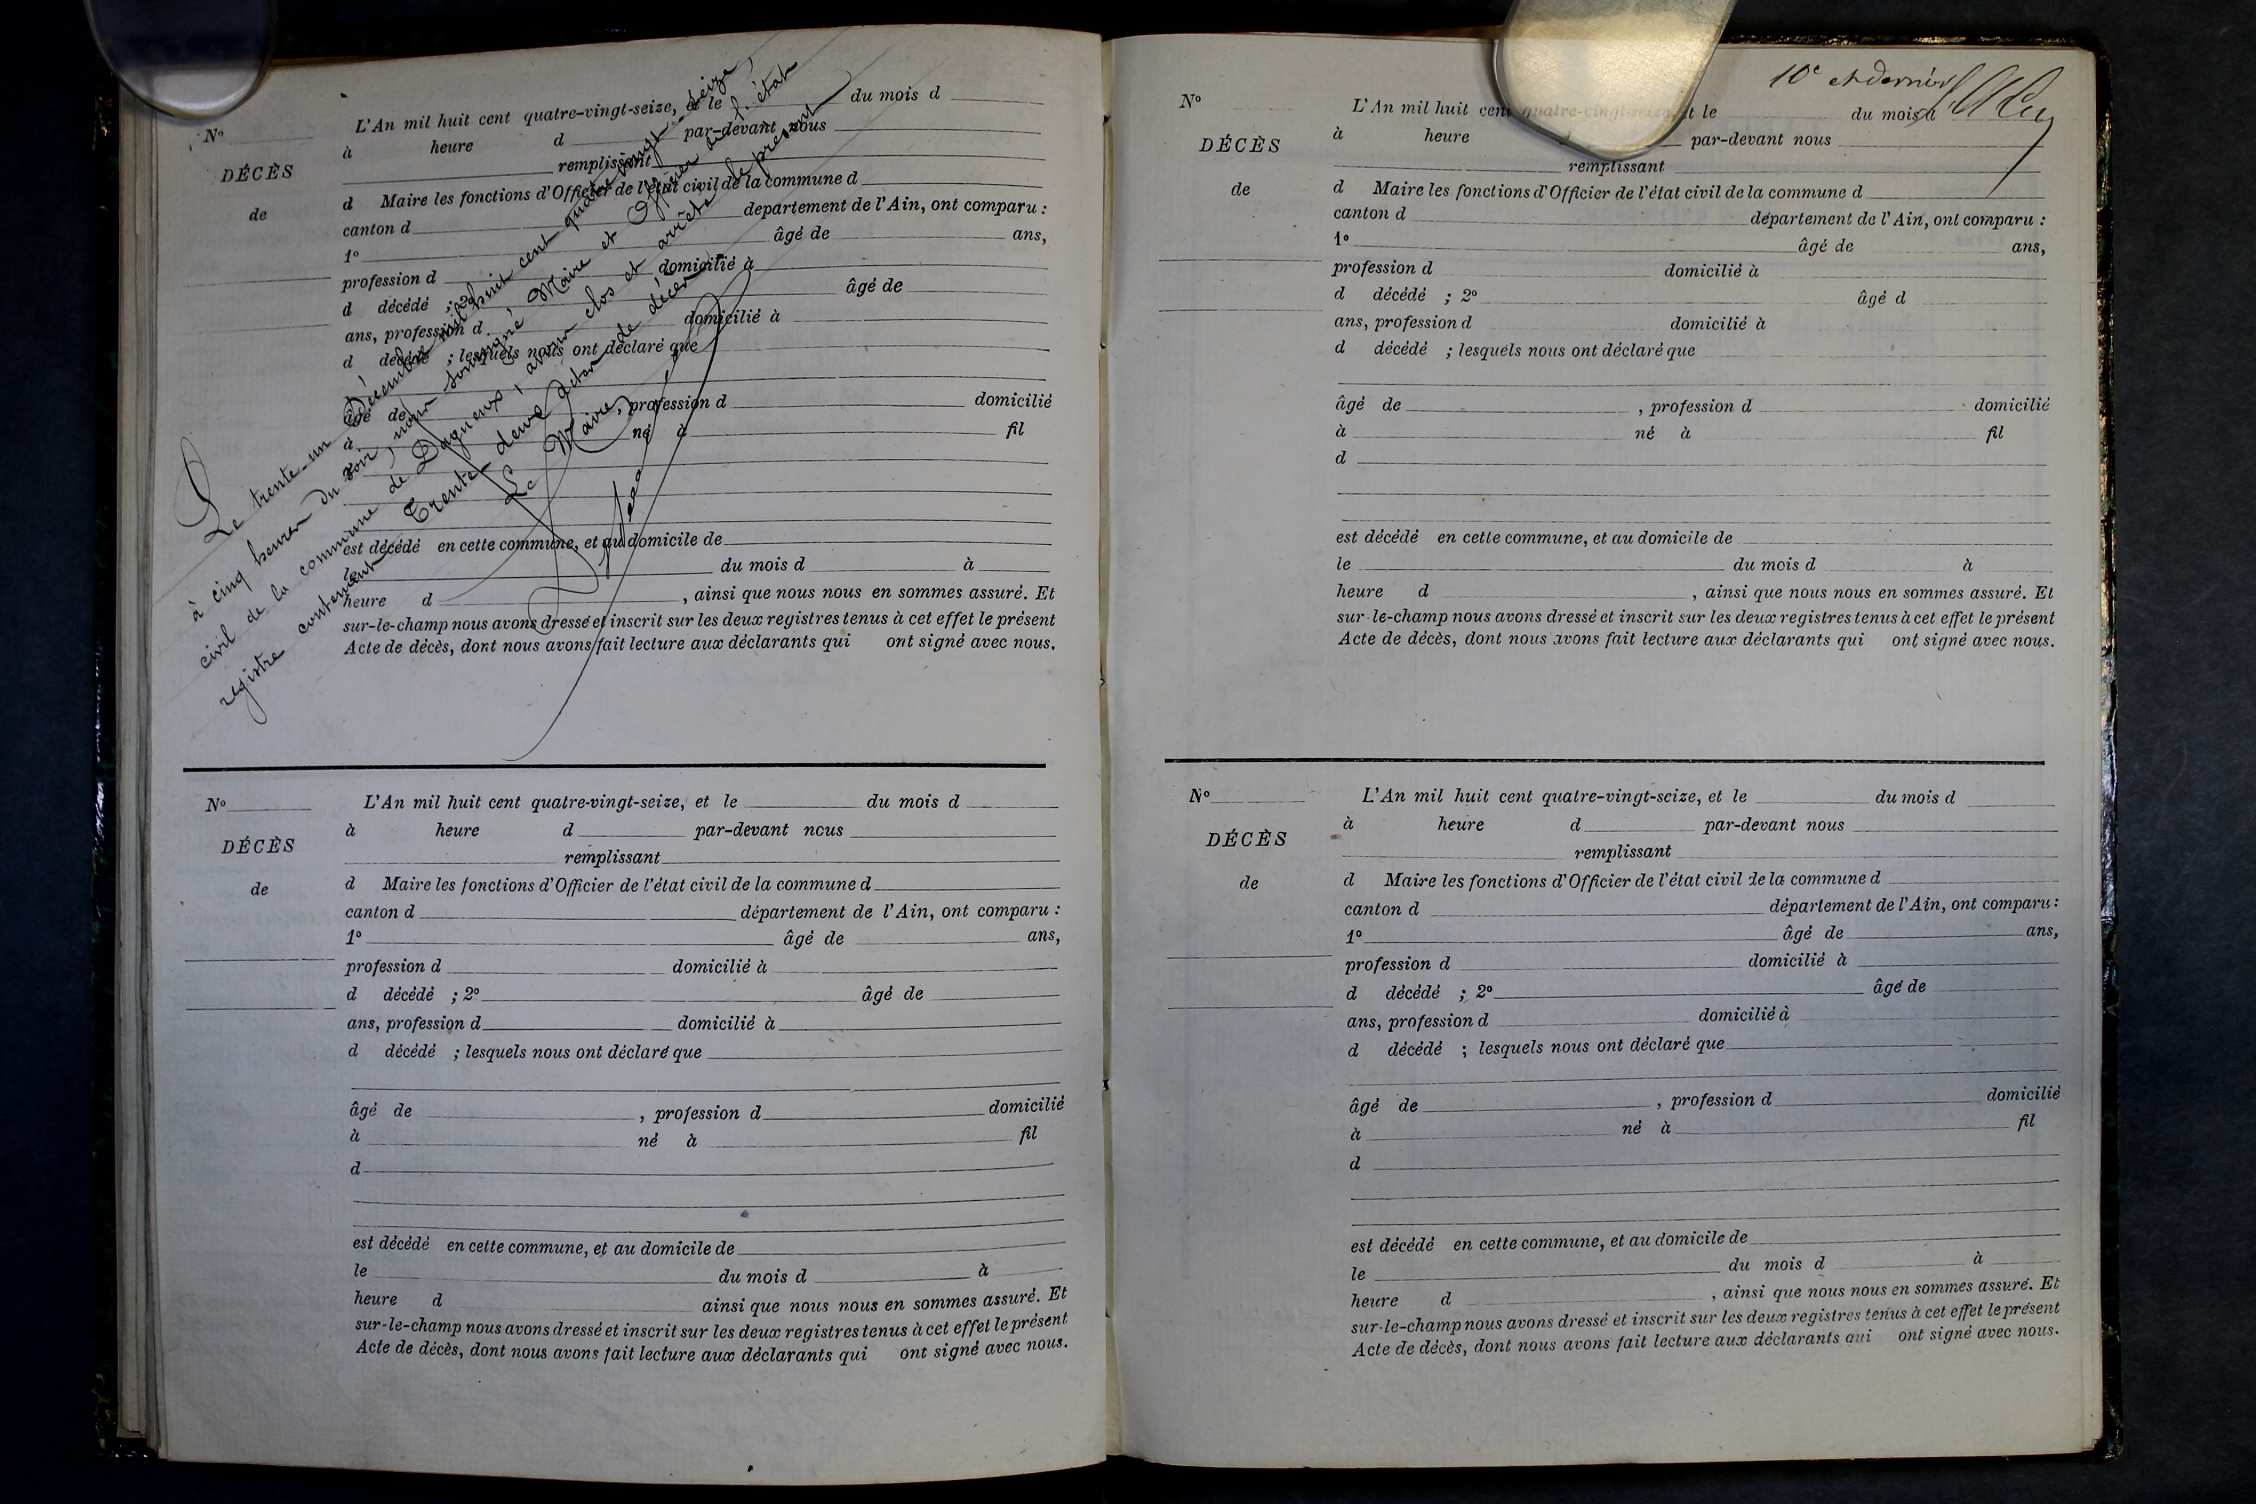 Le trente-un Décembre mil huit cent quatre vingt-seize,
à cinq heures du soir, nous soussigné Maire et Officier de l'état
civil de la commune de Dagneux, avons clos et arrêté le présent
registre contenant Trente-deux actes de décès.
Le Maire,
No
DÉCÈS
de
L'An mil huit cent quatre-vingt-seize, et le du mois d
à heure d par-devant nous
remplissant
d Maire les fonctions d'Officier de l'état civil de la commune d
canton d département de l'Ain, ont comparu :
1o âgé de ans,
profession d domicilié à
d décédé ; 2o âgé de
ans, profession d domicilié à
d décédé ; lesquels nous ont déclaré que
âgé de , profession d domicilié
à né à fil
d
est décédé en cette commune, et au domicile de
le du mois d à
heure d , ainsi que nous nous en sommes assuré. Et
sur-le-champ nous avons dressé et inscrit sur les deux registres tenus à cet effet le présent
Acte de décès, dont nous avons fait lecture aux déclarants qui ont signé avec nous.
No
DÉCÈS
de
L'An mil huit cent quatre-vingt-seize, et le du mois d
à heure d par-devant nous
remplissant
d Maire les fonctions d'Officier de l'état civil de la commune d
canton d département de l'Ain, ont comparu :
1o âgé de ans,
profession d domicilié à
d décédé ; 2o âgé de
ans, profession d domicilié à
d décédé ; lesquels nous ont déclaré que
âgé de , profession d domicilié
à né à fil
d
est décédé en cette commune, et au domicile de
le du mois d à
heure d ainsi que nous nous en sommes assuré. Et
sur-le-champ nous avons dressé et inscrit sur les deux registres tenus à cet effet le présent
Acte de décès, dont nous avons fait lecture aux déclarants qui ont signé avec nous.
10e et dernier
No
DÉCÈS
de
L'An mil huit cent quatre-vingt-seize, et le du mois d
à heure d par-devant nous
remplissant
d Maire les fonctions d'Officier de l'état civil de la commune d
canton d département de l'Ain, ont comparu :
1o âgé de ans,
profession d domicilié à
d décédé ; 2o âgé d
ans, profession d domicilié à
d décédé ; lesquels nous ont déclaré que
âgé de , profession d domicilié
à né à fil
d
est décédé en cette commune, et au domicile de
le du mois d à
heure d , ainsi que nous nous en sommes assuré. Et
sur-le-champ nous avons dressé et inscrit sur les deux registres tenus à cet effet le présent
Acte de décès, dont nous avons fait lecture aux déclarants qui ont signé avec nous.
No
DÉCÈS
de
L'An mil huit cent quatre-vingt-seize, et le du mois d
à heure d par-devant nous
remplissant
d Maire les fonctions d'Officier de l'état civil de la commune d
canton d département de l'Ain, ont comparu :
1o âgé de ans,
profession d domicilié à
d décédé ; 2o âgé de
ans, profession d domicilié à
d décédé ; lesquels nous ont déclaré que
âgé de , profession d domicilié
à né à fil
d
est décédé en cette commune, et au domicile de
le du mois d à
heure d , ainsi que nous nous en sommes assuré. Et
sur-le-champ nous avons dressé et inscrit sur les deux registres tenus à cet effet le présent
Acte de décès, dont nous avons fait lecture aux déclarants qui ont signé avec nous.